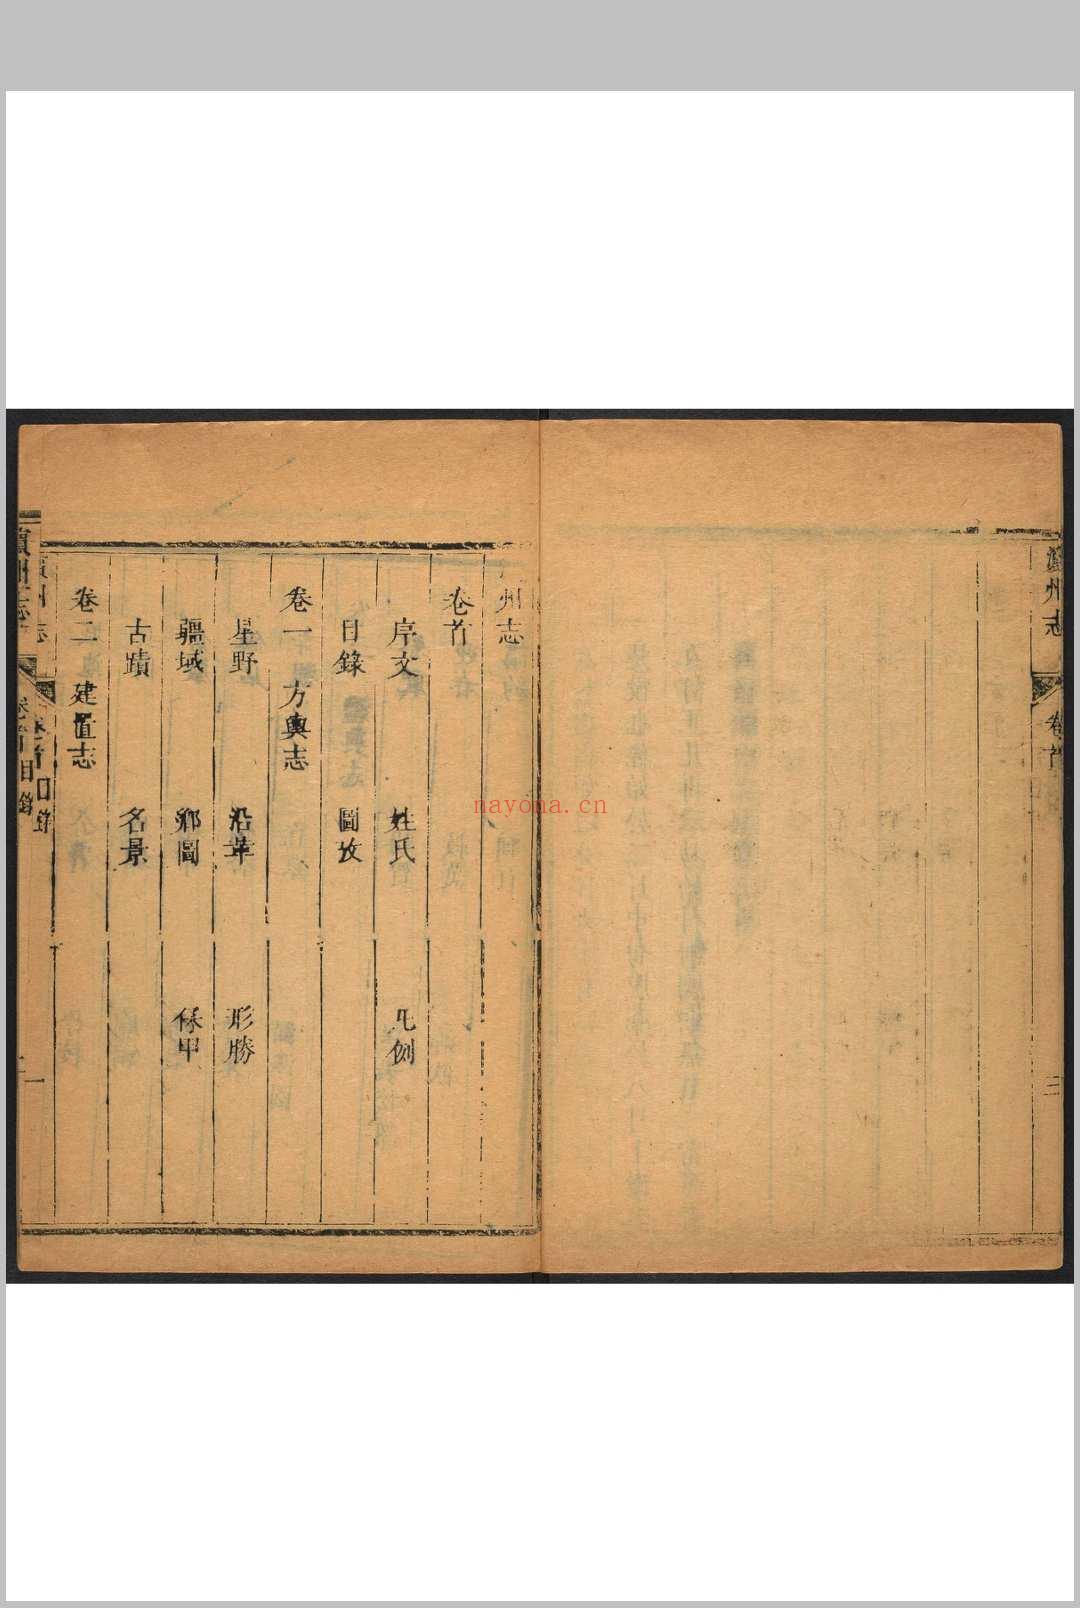 州志
卷首
序文 姓氏 凡例
目錄 圖攷
卷一 方輿志
星野 沿革 形勝
疆域 鄉圖 保甲
古蹟 名景
卷二 建置志
州志 卷首 目錄 一
州志 卷首
nayona.cn